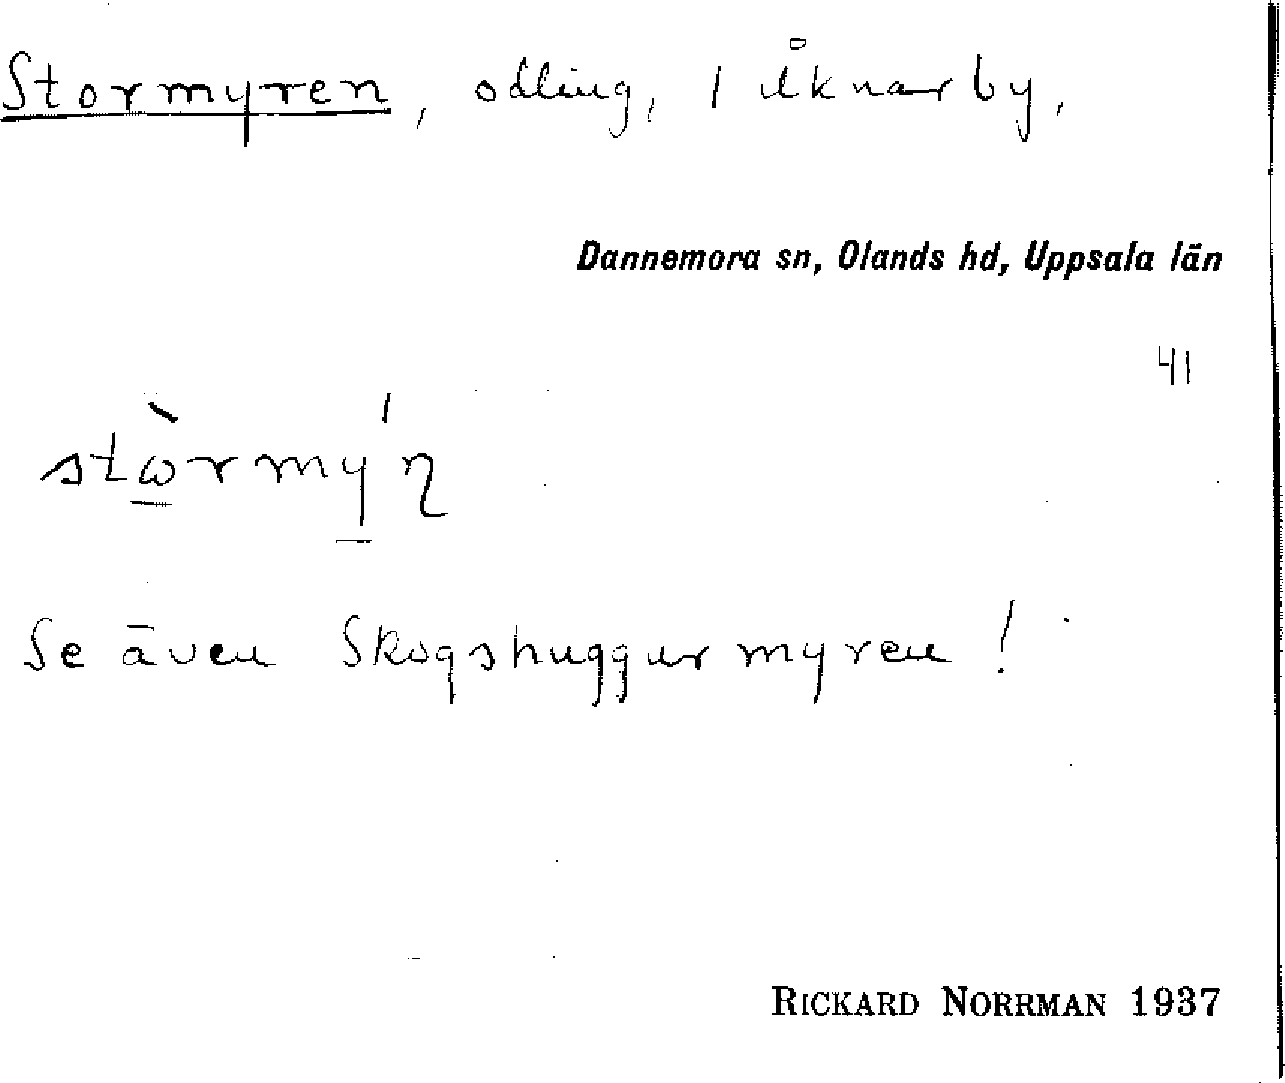 Stormyren, odling, i Åknarby,
Dannemora sn, Olands hd, Uppsala län
41
stὼrmy´n
Se även Skogshuggurmyren!
RICKARD NORRMAN 1937